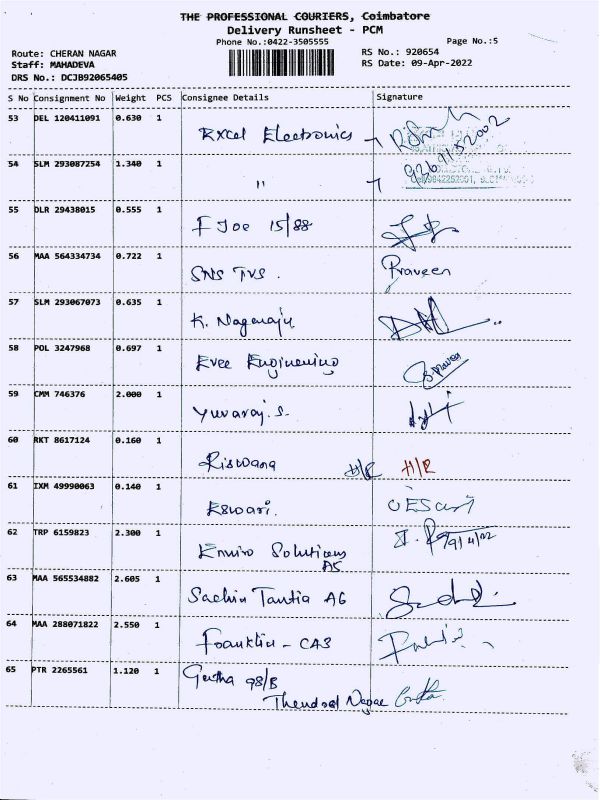 THE PROFESSIONAL COURIERS, Coimbatore
Delivery Runsheet - PCM
Phone No.:0422-3505555 Page No.:5
Route: CHERAN NAGAR RS No.: 920654
Staff: MAHADEVA RS Date: 09-Apr-2022
DRS No.: DCJB92065405
S No Consignment No Weight PCS Consignee Details Signature
53 DEL 120411091 0.630 1 Rxcel Electronics
54 SLM 293087254 1.340 1 "
55 DLR 29438015 0.555 1 F Joe 15/88
56 MAA 564334734 0.722 1 SNS TVS. Praveen
57 SLM 293067073 0.635 1 K. Nagaraju
58 POL 3247968 0.697 1 Evee Engineering
59 CMM 746376 2.000 1 Yuvaraj.S.
60 RKT 8617124 0.160 1 Riswana H/R H/R
61 IXM 49990063 0.140 1 Eswari.
62 TRP 6159823 2.300 1 Enviro Solutions
A5
63 MAA 565534882 2.605 1 Sachin Tantia A6
64 MAA 288071822 2.550 1 Franklin - CA3
65 PTR 2265561 1.120 1 Geetha 98/B
Nagar